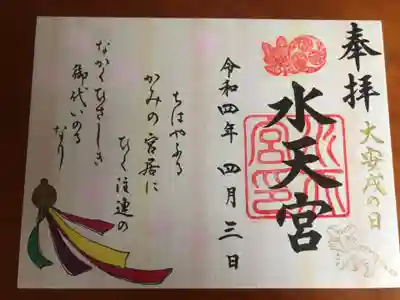 奉拝
大安戌の日
水天宮
水天宮印
令和四年 四月 三日
ちはやふる
かみの宮居に
ひく注連の
ながくひさしき
御代いのる
なり